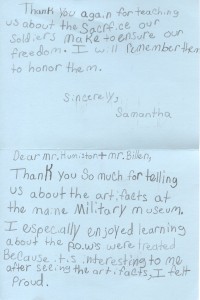 Thank you again for teaching
us about the Sacrifce our
Soldiers make to ensure our
freedom. I will remember them
to honor them.
Sincerely,
Samantha
Dear mr. Humiston + mr. Billen,
Thank you so much for telling
us about the artifacts at
the maine Military museum.
I especially enjoyed learning
about the P.O.W.s were treated
Because it is interesting to me
after seeing the artifacts, I felt
Proud.